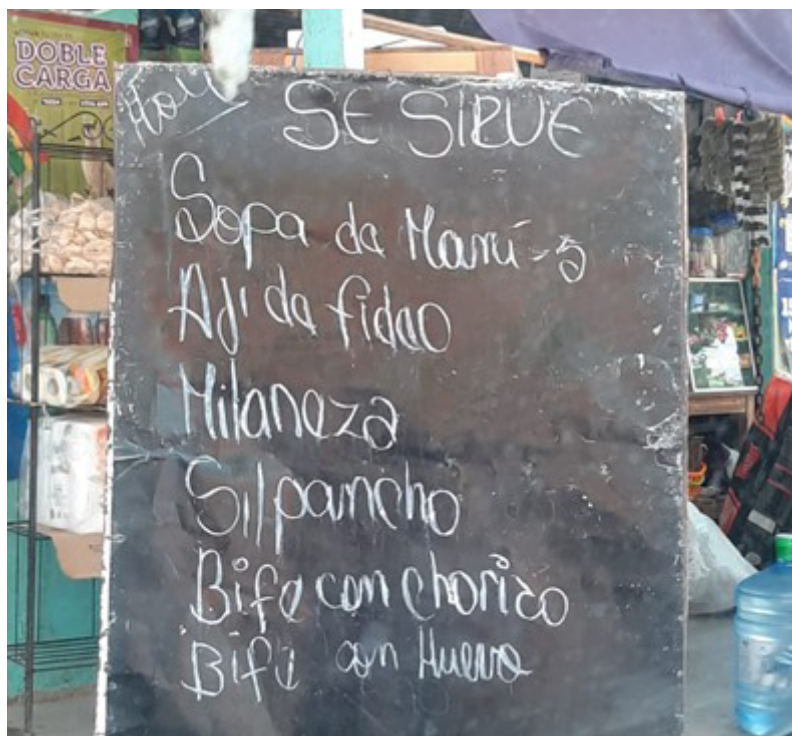 DOBLE
CARGA
Hoy SE SIRVE
Sopa de Maní - 5
Aji de fideo
Milaneza
Silpancho
Bife con chorizo
Bife con Huevo